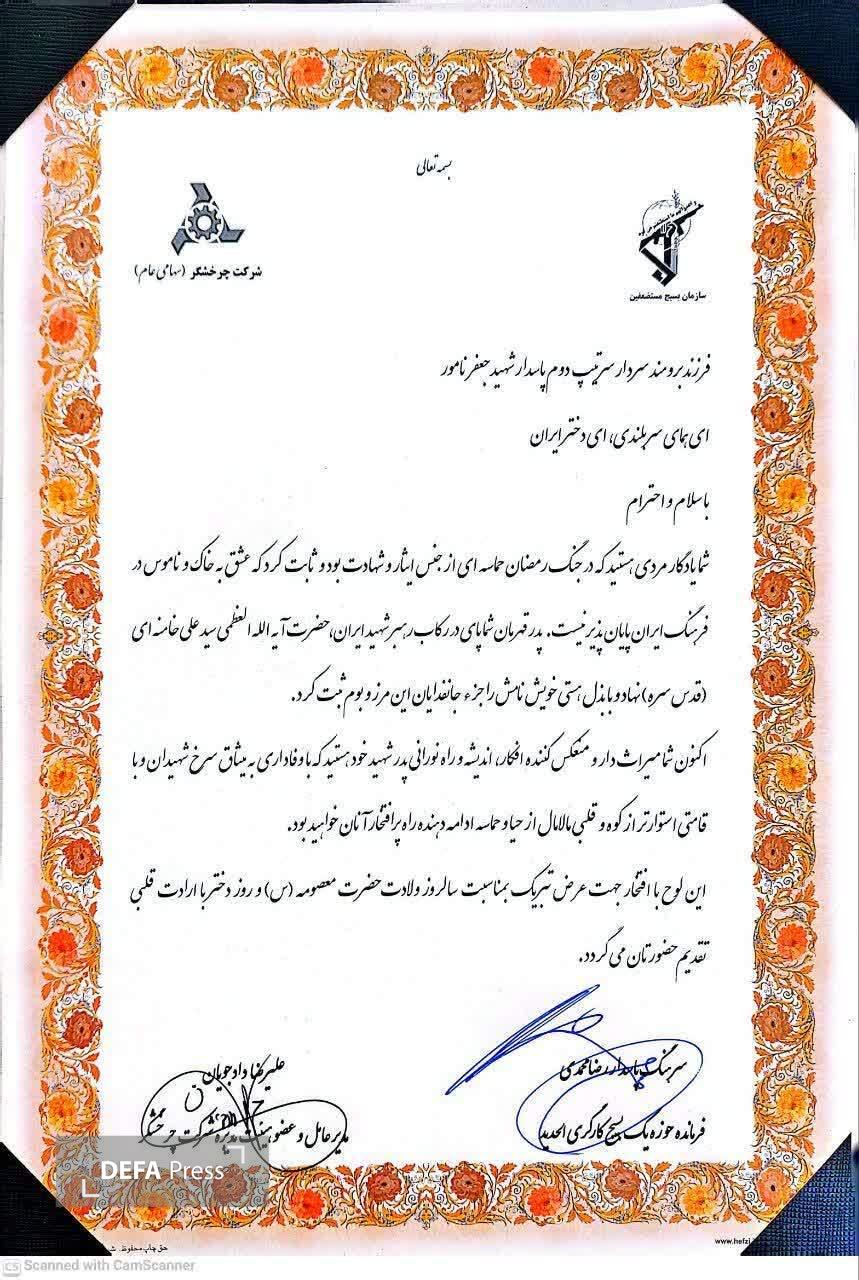 بسمه تعالی
سازمان بسیج مستضعفین
شرکت چرخشگر (سهامی عام)
فرزند برومند سردار سرتیپ دوم پاسدار شهید جعفر نامور
ای همای سربلندی، ای دختر ایران
با سلام و احترام
شما یادگار مردی هستید که در جنگ رمضان حماسه ای از جنس ایثار و شهادت بود و ثابت کرد که عشق به خاک و ناموس در
فرهنگ ایران پایان پذیر نیست. پدر قهرمان شما پای در رکاب رهبر شهید ایران، حضرت آیه الله العظمی سید علی خامنه ای
(قدس سره) نهاد و با بذل هستی خویش نامش را جزء جانفدایان این مرز و بوم ثبت کرد.
اکنون شما میراث دار و منعکس کننده افکار، اندیشه و راه نورانی پدر شهید خود هستید که با وفاداری به میثاق سرخ شهیدان و با
قامتی استوارتر از کوه و قلبی مالامال از حیا و حماسه ادامه دهنده راه پرافتخار آنان خواهید بود.
این لوح با افتخار جهت عرض تبریک بمناسبت سالروز ولادت حضرت معصومه (س) و روز دختر با ارادت قلبی
تقدیم حضورتان می گردد.
سرهنگ پاسدار رضا محمدی
فرمانده حوزه یک بسیج کارگری الحدید
علیرضا دادجویان
مدیرعامل و عضو هیئت مدیره شرکت چرخشگر
DEFA Press
حق چاپ محفوظ.
www.hefzi
CS Scanned with CamScanner